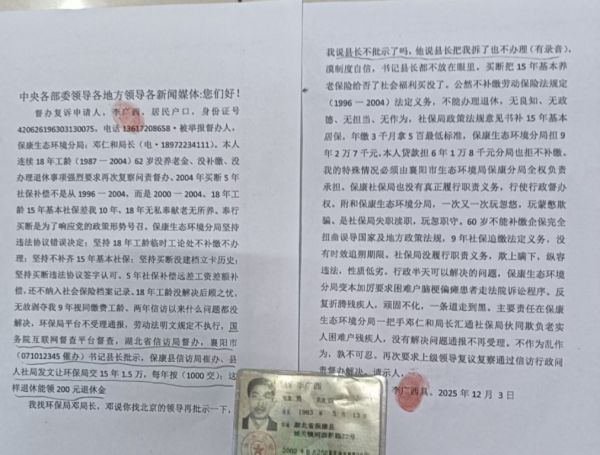 中央各部委领导各地方领导各新闻媒体:您们好！
督办复诉申请人，李广西，居民户口，身份证号
420626196303130075，电话13617208658·被举报督办人，
保康生态环境分局：邓仁和局长（电·18972234111）。本人
连续 18 年工龄（1987－2004）62 岁没养老金、没补缴、没
办理退休事项强烈要求再次复察问责督办。2004 年买断 5 年
社保补偿不是从 1996－2004，而是 2000－2004，18 年工
龄 15 年基本社保差我 10 年，18 年无私奉献老无所养。奉行
买断是为了响应党的政策形势号召，保康生态环境分局坚持
违法协议错误决定；坚持 18 年工龄临时工论处不补缴不办
理；坚持不补齐 15 年基本社保；坚持买断没建档立卡历史；
坚持买断违法协议签字认可。5 年社保补偿远差工资差额补
偿，还不纳入社会保险档案记录。18 年工龄没解决后顾之忧，
无故剥夺我 9 年视同缴费工龄。两年信访以来什么问题都没
解决，环保局平台不受理通报，劳动法明文规定不执行，国
务院互联网督查平台督查，湖北省信访局督办，襄阳市
（071012345 催办）书记县长批示，保康县信访局催办、县
人社局发文让环保局交 15 年 1.5 万，每年按（1000 交）；这
样退休能领 200 元退休金
我找环保局邓局长，邓说你找北京的领导再批示一下，
我说县长不批示了吗，他说县长把我拆了也不办理(有录音)，
漠制度自信，书记县长都不放在眼里。买断把 15 年基本养
老保险给否了社会福利买没了。公然不补缴劳动保险法规定
（1996－2004）法定义务，不能办理退休，无良知、无政
德、无担当、无作为。社保局政策法规意见书补 15 年基本
居保，年缴 3 千月拿 5 百最低标准，保康生态环境分局担 9
年 2 万 7 千元，本人贷款担 6 年 1 万 8 千元分局也拒不补缴。
我的特殊情况必须由襄阳市生态环境局保康分局全权负责
承担。保康社保局也没有真正履行职责义务，行使行政督办
权，附和保康生态环境分局，一次又一次玩忽悠，玩蒙憋欺
骗、是社保局失职渎职，玩忽职守。60 岁不能补缴企保完全
扭曲误导国家及地方政策法规，9 年社保追缴法定义务，没
有时效追朔期限。社保局没履行职责，欺上瞒下，纵容
违法，性质低劣。行政半天可以解决的问题，保康生态环境
分局变本加厉要求困难户脑梗偏瘫患者走法院诉讼程序。反
复折腾残疾人，顽固不化，一条道走到黑。主要责任在保康
生态环境分局一把手邓仁和局长汇通社保局伙同欺负老实
人困难户残疾人，没有解决问题通报不再受理。不作为乱作
为，孰不可忍。再次要求上级领导复议复察通过信访行政问
责督办解决。请示人，
李广西具，2025 年 12 月 3 日
姓名 李广西
1963
湖北省保康县